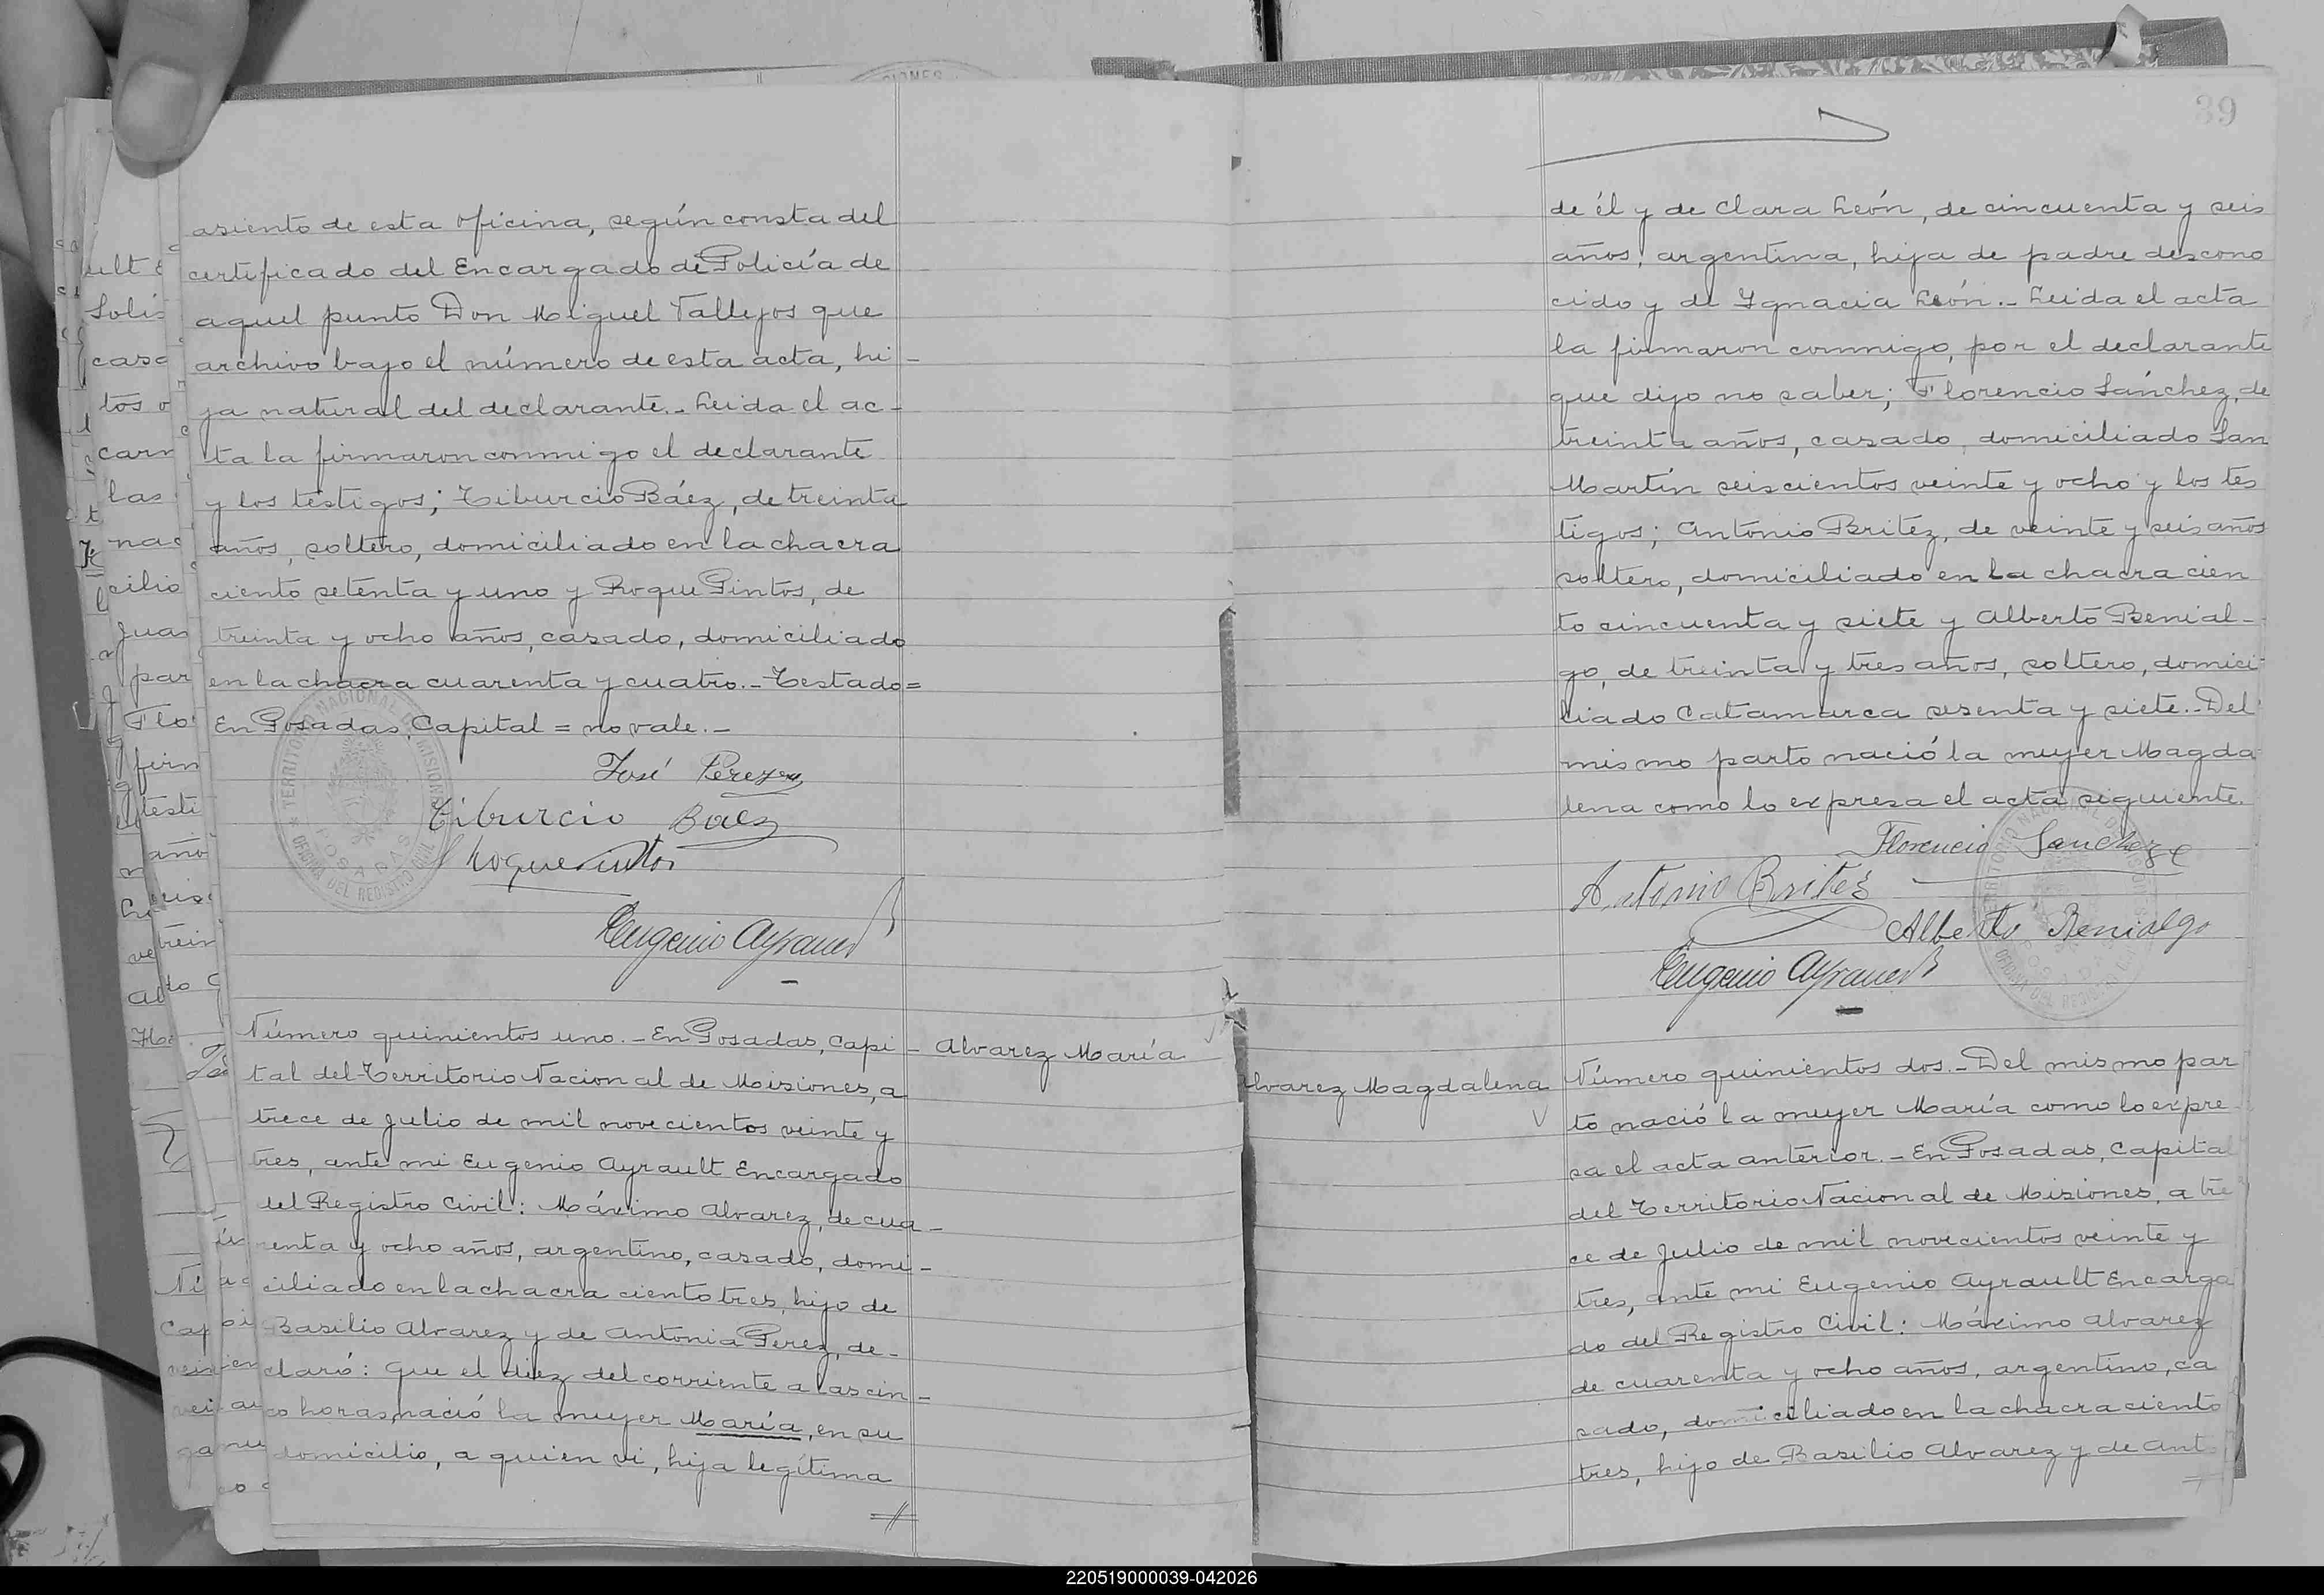 asiento de esta oficina, según consta del
certificado del Encargado de Policía de
aquel punto Don Miguel Vallejos que
archivo bajo el número de esta acta, hi-
ja natural del declarante.- Leida el ac-
ta la firmaron conmigo el declarante
y los testigos; Tiburcio Báez, de treinta
años, soltero, domiciliado en la chacra
ciento setenta y uno y Roque Pintos, de
treinta y ocho años, casado, domiciliado
en la chacra cuarenta y cuatro.- Testado=
En Posadas, Capital = no vale.-
José Perez
Tiburcio Baez
Roque Pintos
Eugenio Ayrault
TERRITORIO NACIONAL DE MISIONES
POSADAS
OFICINA DEL REGISTRO CIVIL
Número quinientos uno.- En Posadas, Capi-
tal del Territorio Nacional de Misiones, a
trece de Julio de mil novecientos veinte y
tres, ante mi Eugenio Ayrault Encargado
del Registro Civil: Máximo Alvarez, de cua-
renta y ocho años, argentino, casado, domi-
ciliado en la chacra ciento tres, hijo de
Basilio Alvarez y de Antonia Perez, de-
claró: Que el diez del corriente a las cin-
co horas, nació la mujer María, en su
domicilio, a quien vi, hija legítima
Alvarez María
39
de él y de Clara León, de cincuenta y seis
años, argentina, hija de padre descono
cido y de Ygnacia León.- Leida el acta
la firmaron conmigo, por el declarante
que dijo no saber; Florencio Sánchez, de
treinta años, casado, domiciliado San
Martín seiscientos veinte y ocho y los tes
tigos; Antonio Britez, de veinte y seis años
soltero, domiciliado en la chacra cien
to cincuenta y siete y Alberto Benial-
go, de treinta y tres años, soltero, domici-
liado Catamarca sesenta y siete.- Del
mismo parto nació la mujer Magda
lena como lo expresa el acta siguiente.
Florencio Sanchez
Antonio Britez
Alberto Benialgo
Eugenio Ayrault
Alvarez Magdalena
Número quinientos dos.- Del mismo par
to nació la mujer María como lo expre
sa el acta anterior.- En Posadas, Capital
del Territorio Nacional de Misiones, a tre
ce de Julio de mil novecientos veinte y
tres, ante mi Eugenio Ayrault Encarga
do del Registro Civil: Máximo Alvarez
de cuarenta y ocho años, argentino, ca
sado, domiciliado en la chacra ciento
tres, hijo de Basilio Alvarez y de Anto
220519000039-042026